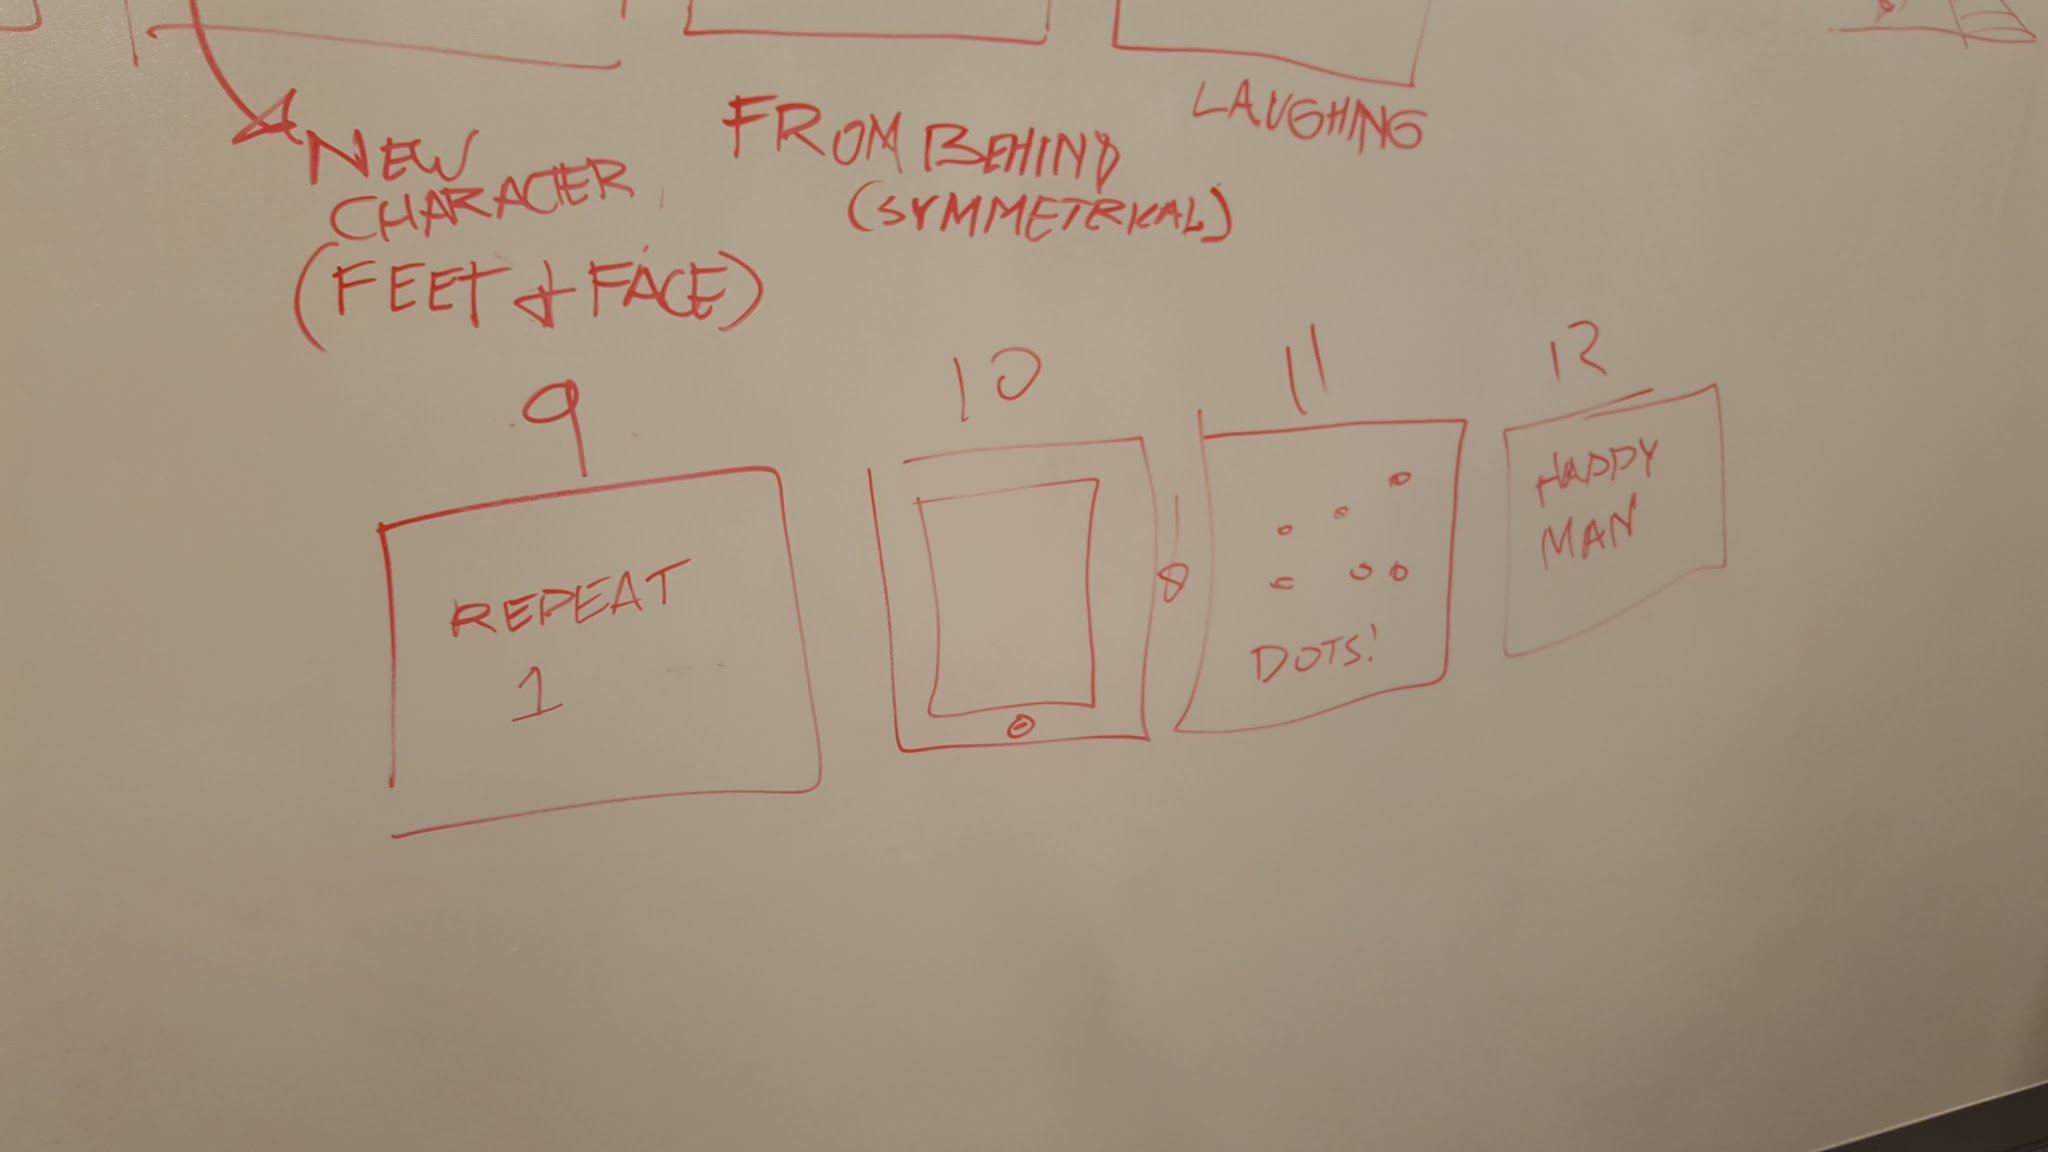 NEW
CHARACTER
(FEET & FACE)
FROM BEHIND
(SYMMETRICAL)
LAUGHING
9
REPEAT
1
10
11
DOTS!
12
HAPPY
MAN